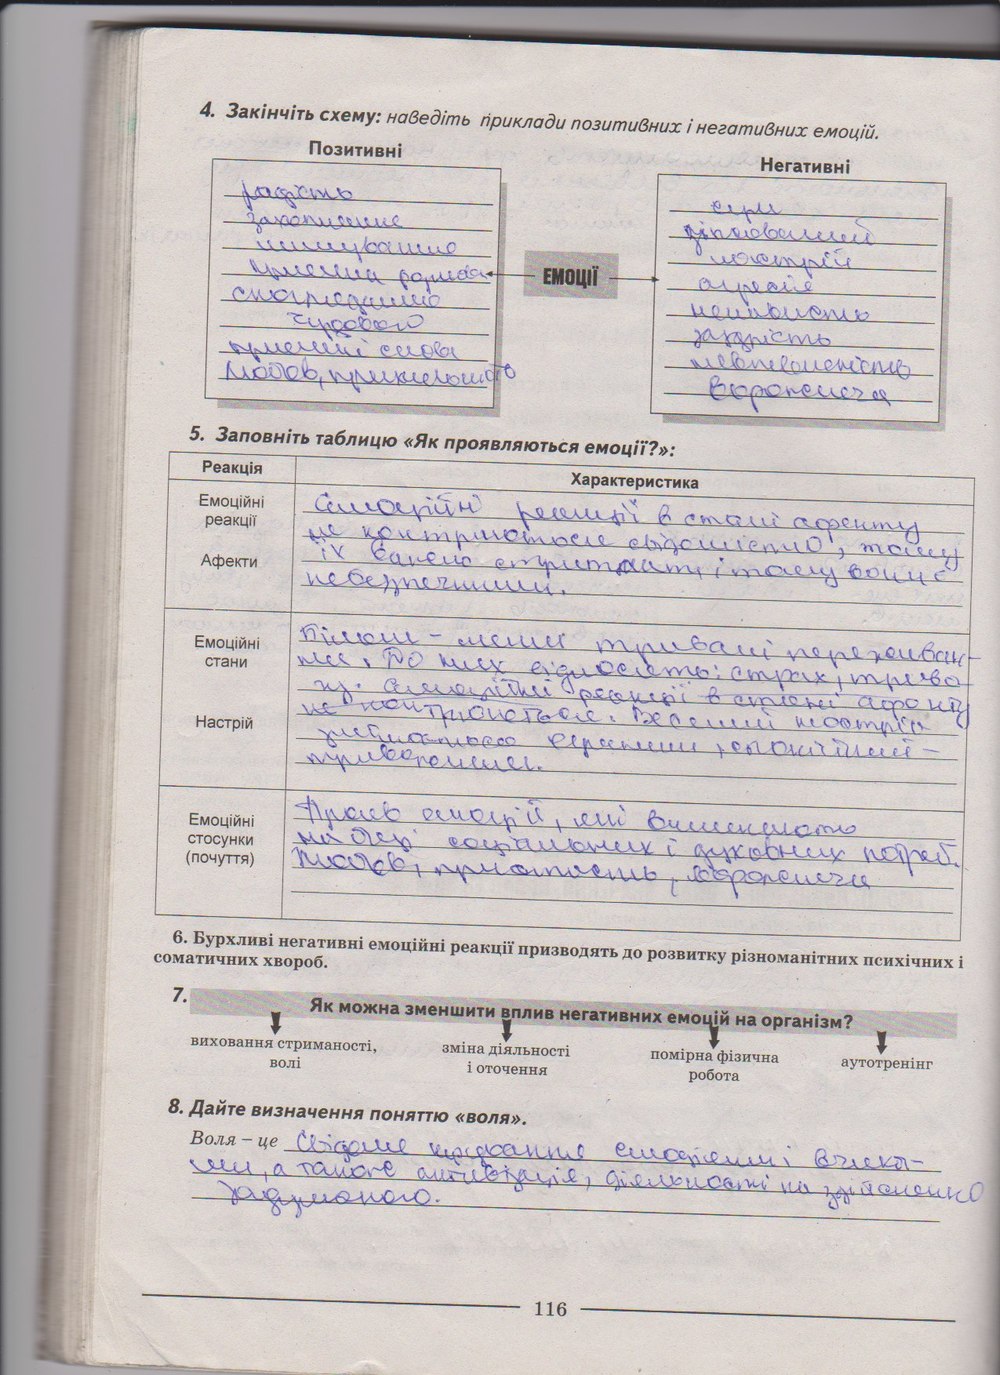 4. Закінчіть схему: наведіть приклади позитивних і негативних емоцій.
Позитивні
радість
захоплення
милування
приємна розмова
споглядання
чудового
приємні слова
любов, прихильність
ЕМОЦІЇ
Негативні
гнів
зіпсований
настрій
агресія
ненависть
заздрість
невпевненість
ворожнеча
5. Заповніть таблицю «Як проявляються емоції?»:
Реакція
Характеристика
Емоційні
реакції
Афекти
Емоційні реакції в стані афекту
не контролюються свідомістю, тому
їх важко стримати, і тому вони є
небезпечними.
Емоційні
стани
Настрій
Більш – менш тривалі переживан-
ня. До них відносять: страх, триво-
гу. Емоційні реакції в стані афекту
не контролюються. Веселий настрій
змінюється сумним, спокійний –
тривожним.
Емоційні
стосунки
(почуття)
Прояв емоцій, які виникають
на базі соціальних і духовних потреб.
Любов, приязність, ворожнеча
6. Бурхливі негативні емоційні реакції призводять до розвитку різноманітних психічних і
соматичних хвороб.
7.
Як можна зменшити вплив негативних емоцій на організм?
виховання стриманості,
волі
зміна діяльності
і оточення
помірна фізична
робота
аутотренінг
8. Дайте визначення поняттю «воля».
Воля – це свідоме керування емоціями і вчинка-
ми, а також активізація, діяльності на здійснення
задуманого.
116